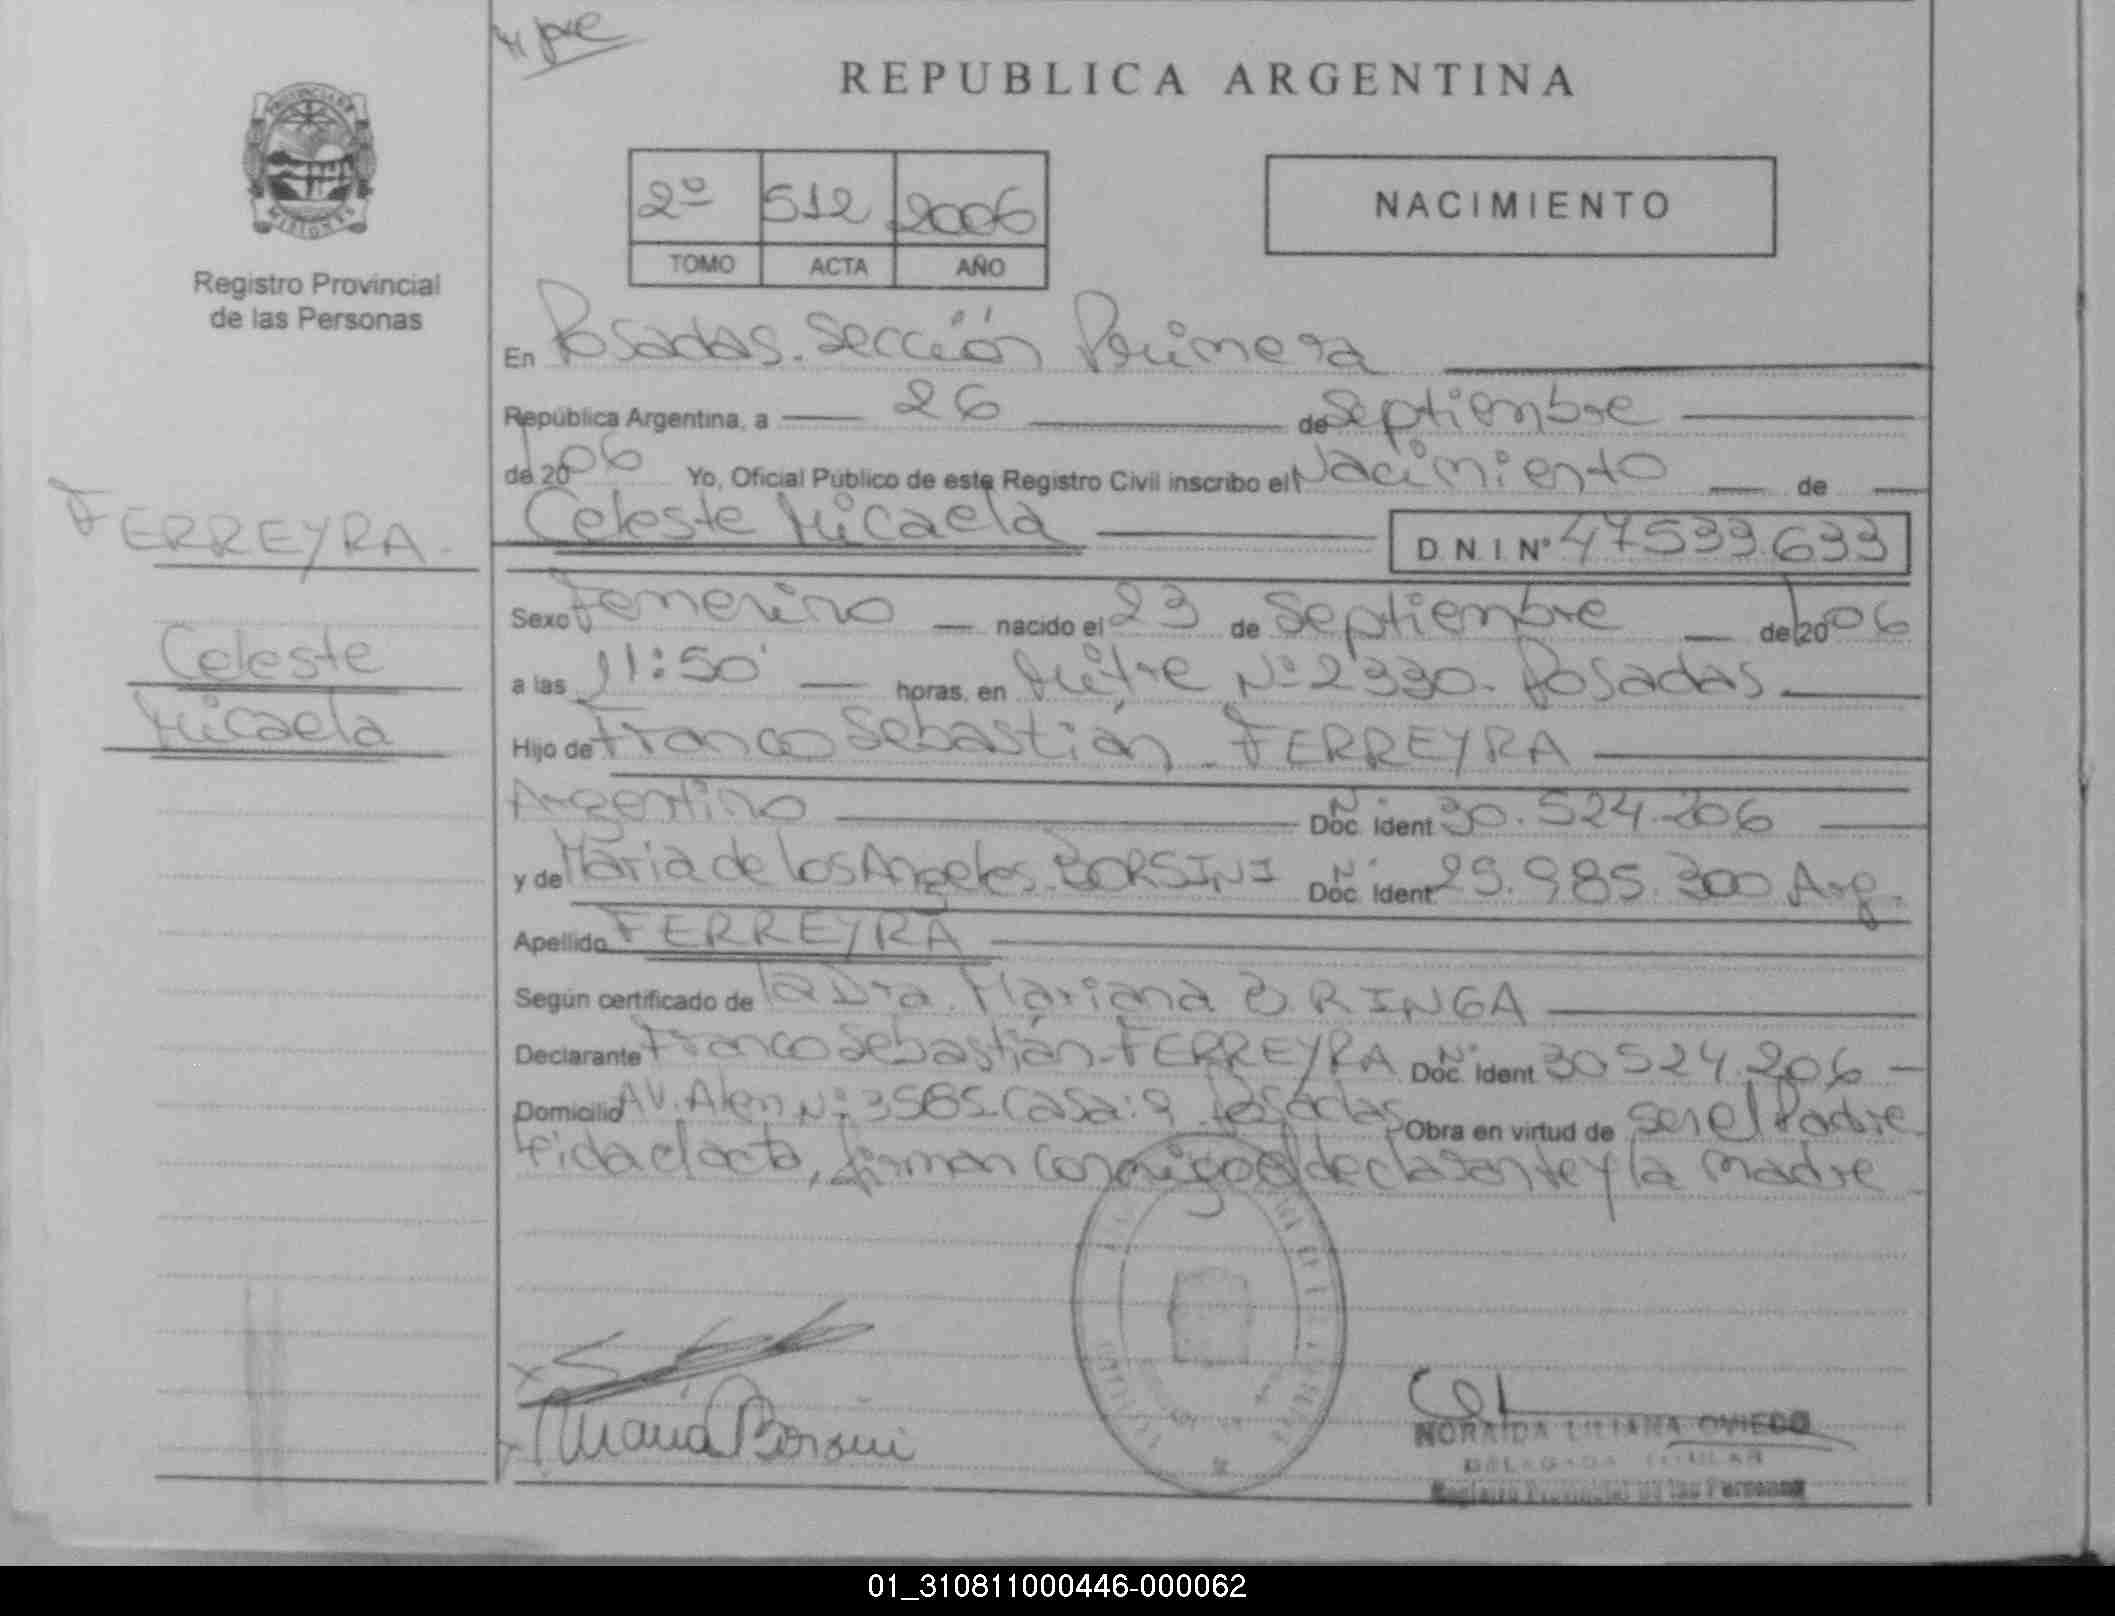 REPUBLICA ARGENTINA
2º 512 2006
TOMO ACTA AÑO
NACIMIENTO
Registro Provincial
de las Personas
En Posadas. Sección Primera
República Argentina, a 26 de Septiembre
de 2006 Yo, Oficial Público de este Registro Civil inscribo el Nacimiento de
Celeste Micaela D.N.I. Nº 47533.633
FERREYRA.
Celeste
Micaela
Sexo Femenino nacido el 23 de Septiembre de 2006
a las 11:50' horas, en Mitre Nº 2330. Posadas
Hijo de Franco Sebastián FERREYRA
Argentino Nº Doc. Ident 30.524.206
y de María de los Angeles BORSINI Nº Doc. Ident 29.985.300 Arg.
Apellido FERREYRA
Según certificado de la Dra. Mariana B. RINGA
Declarante Franco Sebastián FERREYRA Nº Doc. Ident 30.524.206
Domicilio AV. Alem Nº 3585. Casa: 9 Posadas Obra en virtud de ser el Padre
leida el acta, firman conmigo el declarante y la madre
María Borsini
NORAIDA LILIANA OVIEDO
DELEGADA TITULAR
Registro Provincial de las Personas
01_310811000446-000062